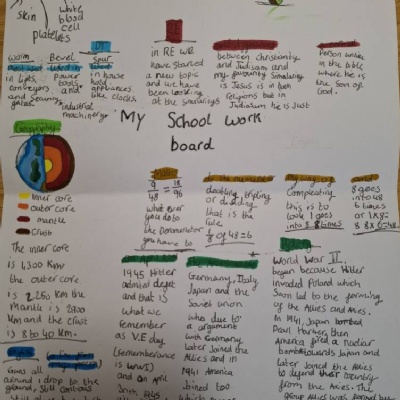 skin
white
blood
cell
platelets
DT
worm
Bevel
Spur
in lifts,
conveyors
and Security
gates.
power
tools,
and
industrial
machinery
in house
hold
appliances
like clocks.
in RE we
have started
a new topic
and we have
been looking
at the similarlys
between christianity
and Judiasm and
my favourity Similarity
is Jesus is in both
religions but in
Judiasm he is Just
Person writen
in the bible
where he is
the Son of
God.
My School work
board
Geography
inner core
outer core
mantle
crust
The inner core
is 1,300 Km
the outer core
is 2250 km the
Mantle is 2900
km and the crust
is 8 to 40 km.
Maths
9 = 18
48 96
what ever
you do to
the Denominator
you have to
the numerator
doubling, tripling
or dividing
that is the
rule.
1/8 of 48=6
my way of
Compleating
this is to
look 1 goes
into 8 8 times
and
8 goes
into 48
6 times
or 1x8=
8 8x6=48
1945 Hitler
admited defeat
and that is
what we
remember
as V.E day
(rememberance
is WW1)
and on April
Germany, Italy
Japan and the
Soviet union
who due to
a argument
with Germany
later Joined the
Allies and in
1941 America
Joined too
World War II
began because Hitler
invaded Poland which
Soon led to the forming
of the Allies and Axies.
In 1941, Japan bombed
Pearl Harber, then
America fired a nuclear
bomb towards Japan and
later Joined the Allies
to defend their Country
from the Axies. The
group Allies was formed
Guns all
around I drop to the
ground, Still cautious